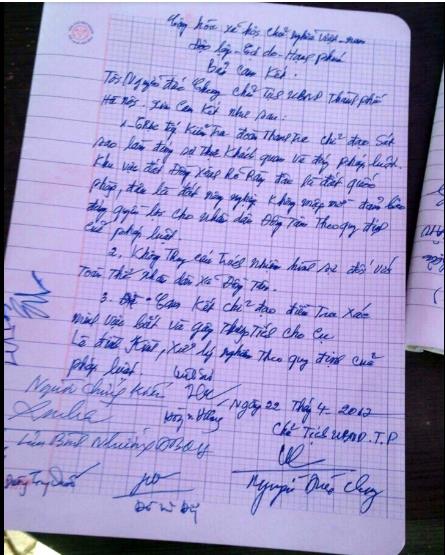 Cộng hòa xã hội chủ nghĩa Việt nam
Độc lập - Tự do - Hạnh phúc
Bản Cam Kết.
Tôi Nguyễn Đức Chung chủ Tịch UBND Thành phố
Hà Nội. Xin Cam Kết như sau:
1. Trực tiếp Kiểm tra đoàn Thanh tra chỉ đạo sát
sao làm đúng sự thật Khách quan và đúng pháp luật.
Khu vực đất Đồng Sênh đâu là đất quốc
phòng, đâu là đất nông nghiệp không mập mờ đảm bảo
đúng quyền lợi cho nhân dân Đồng Tâm theo quy định
của pháp luật.
2. Không Truy cứu Trách nhiệm hình sự đối với
Toàn Thể nhân dân xã Đồng Tâm.
3. Cam Kết chỉ đạo điều Tra Xác
minh việc bắt và gây Thương Tích cho Cụ
Lê Đình Kình, Xử lý nghiêm Theo quy định của
pháp luật.
Người chứng Kiến
Ngày 22 Thág 4 - 2017
Chủ Tịch UBND. T.P
Lưu Bình Nhưỡng ĐBQH
Nguyễn Đức Chung